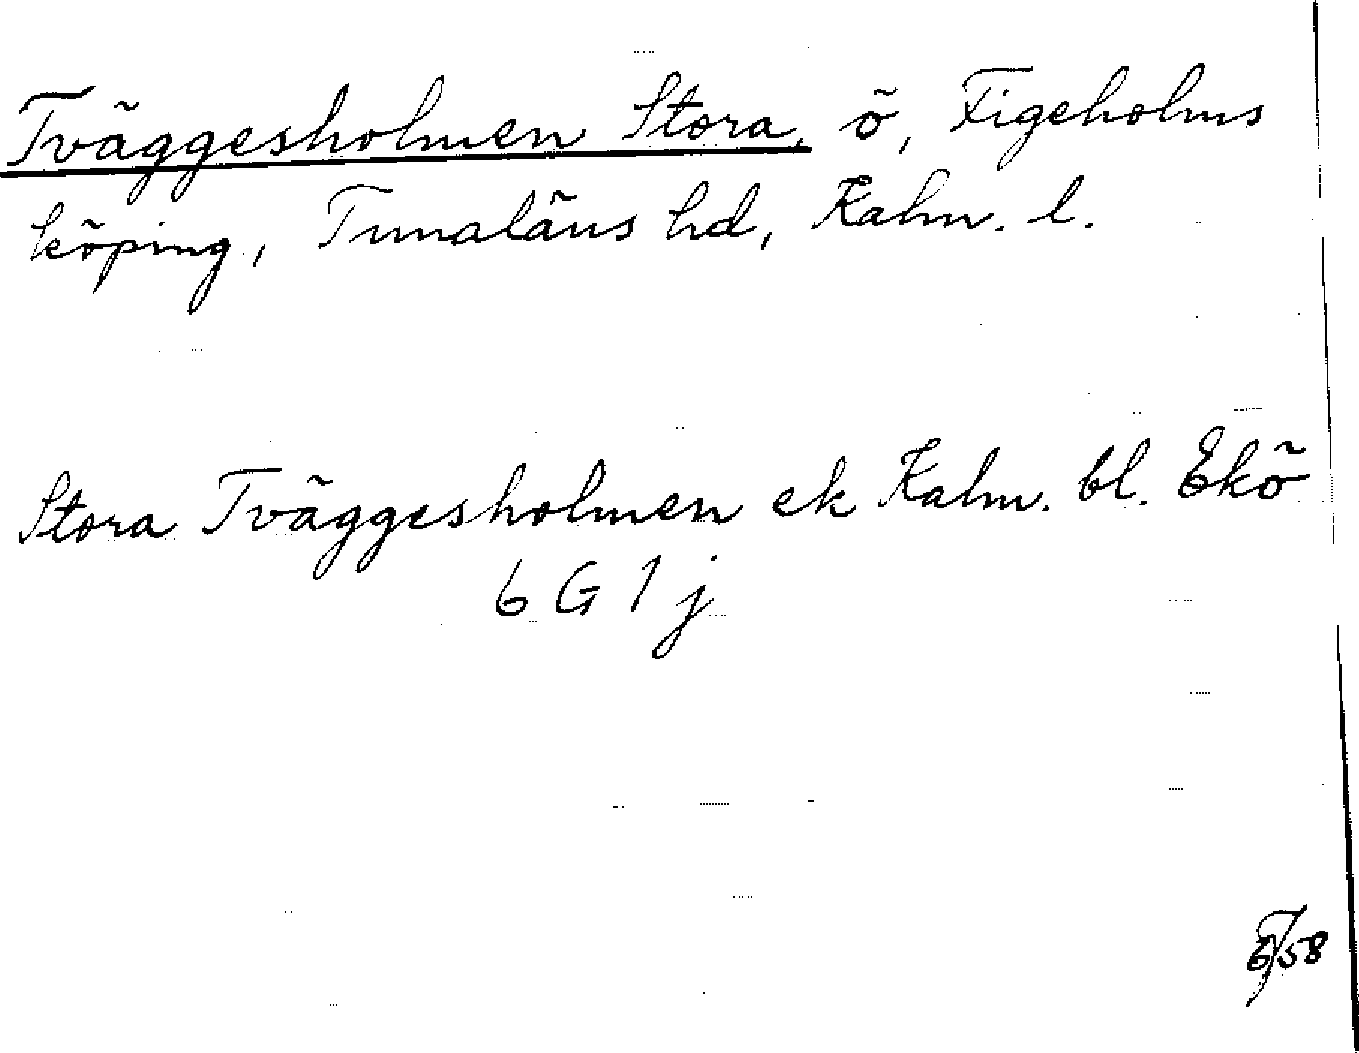 Tväggesholmen Stora, ö, Figeholms
köping, Tunaläns hd, Kalm. l.
Stora Tväggesholmen ek Kalm. bl. Ekö
6 G 1 j
58